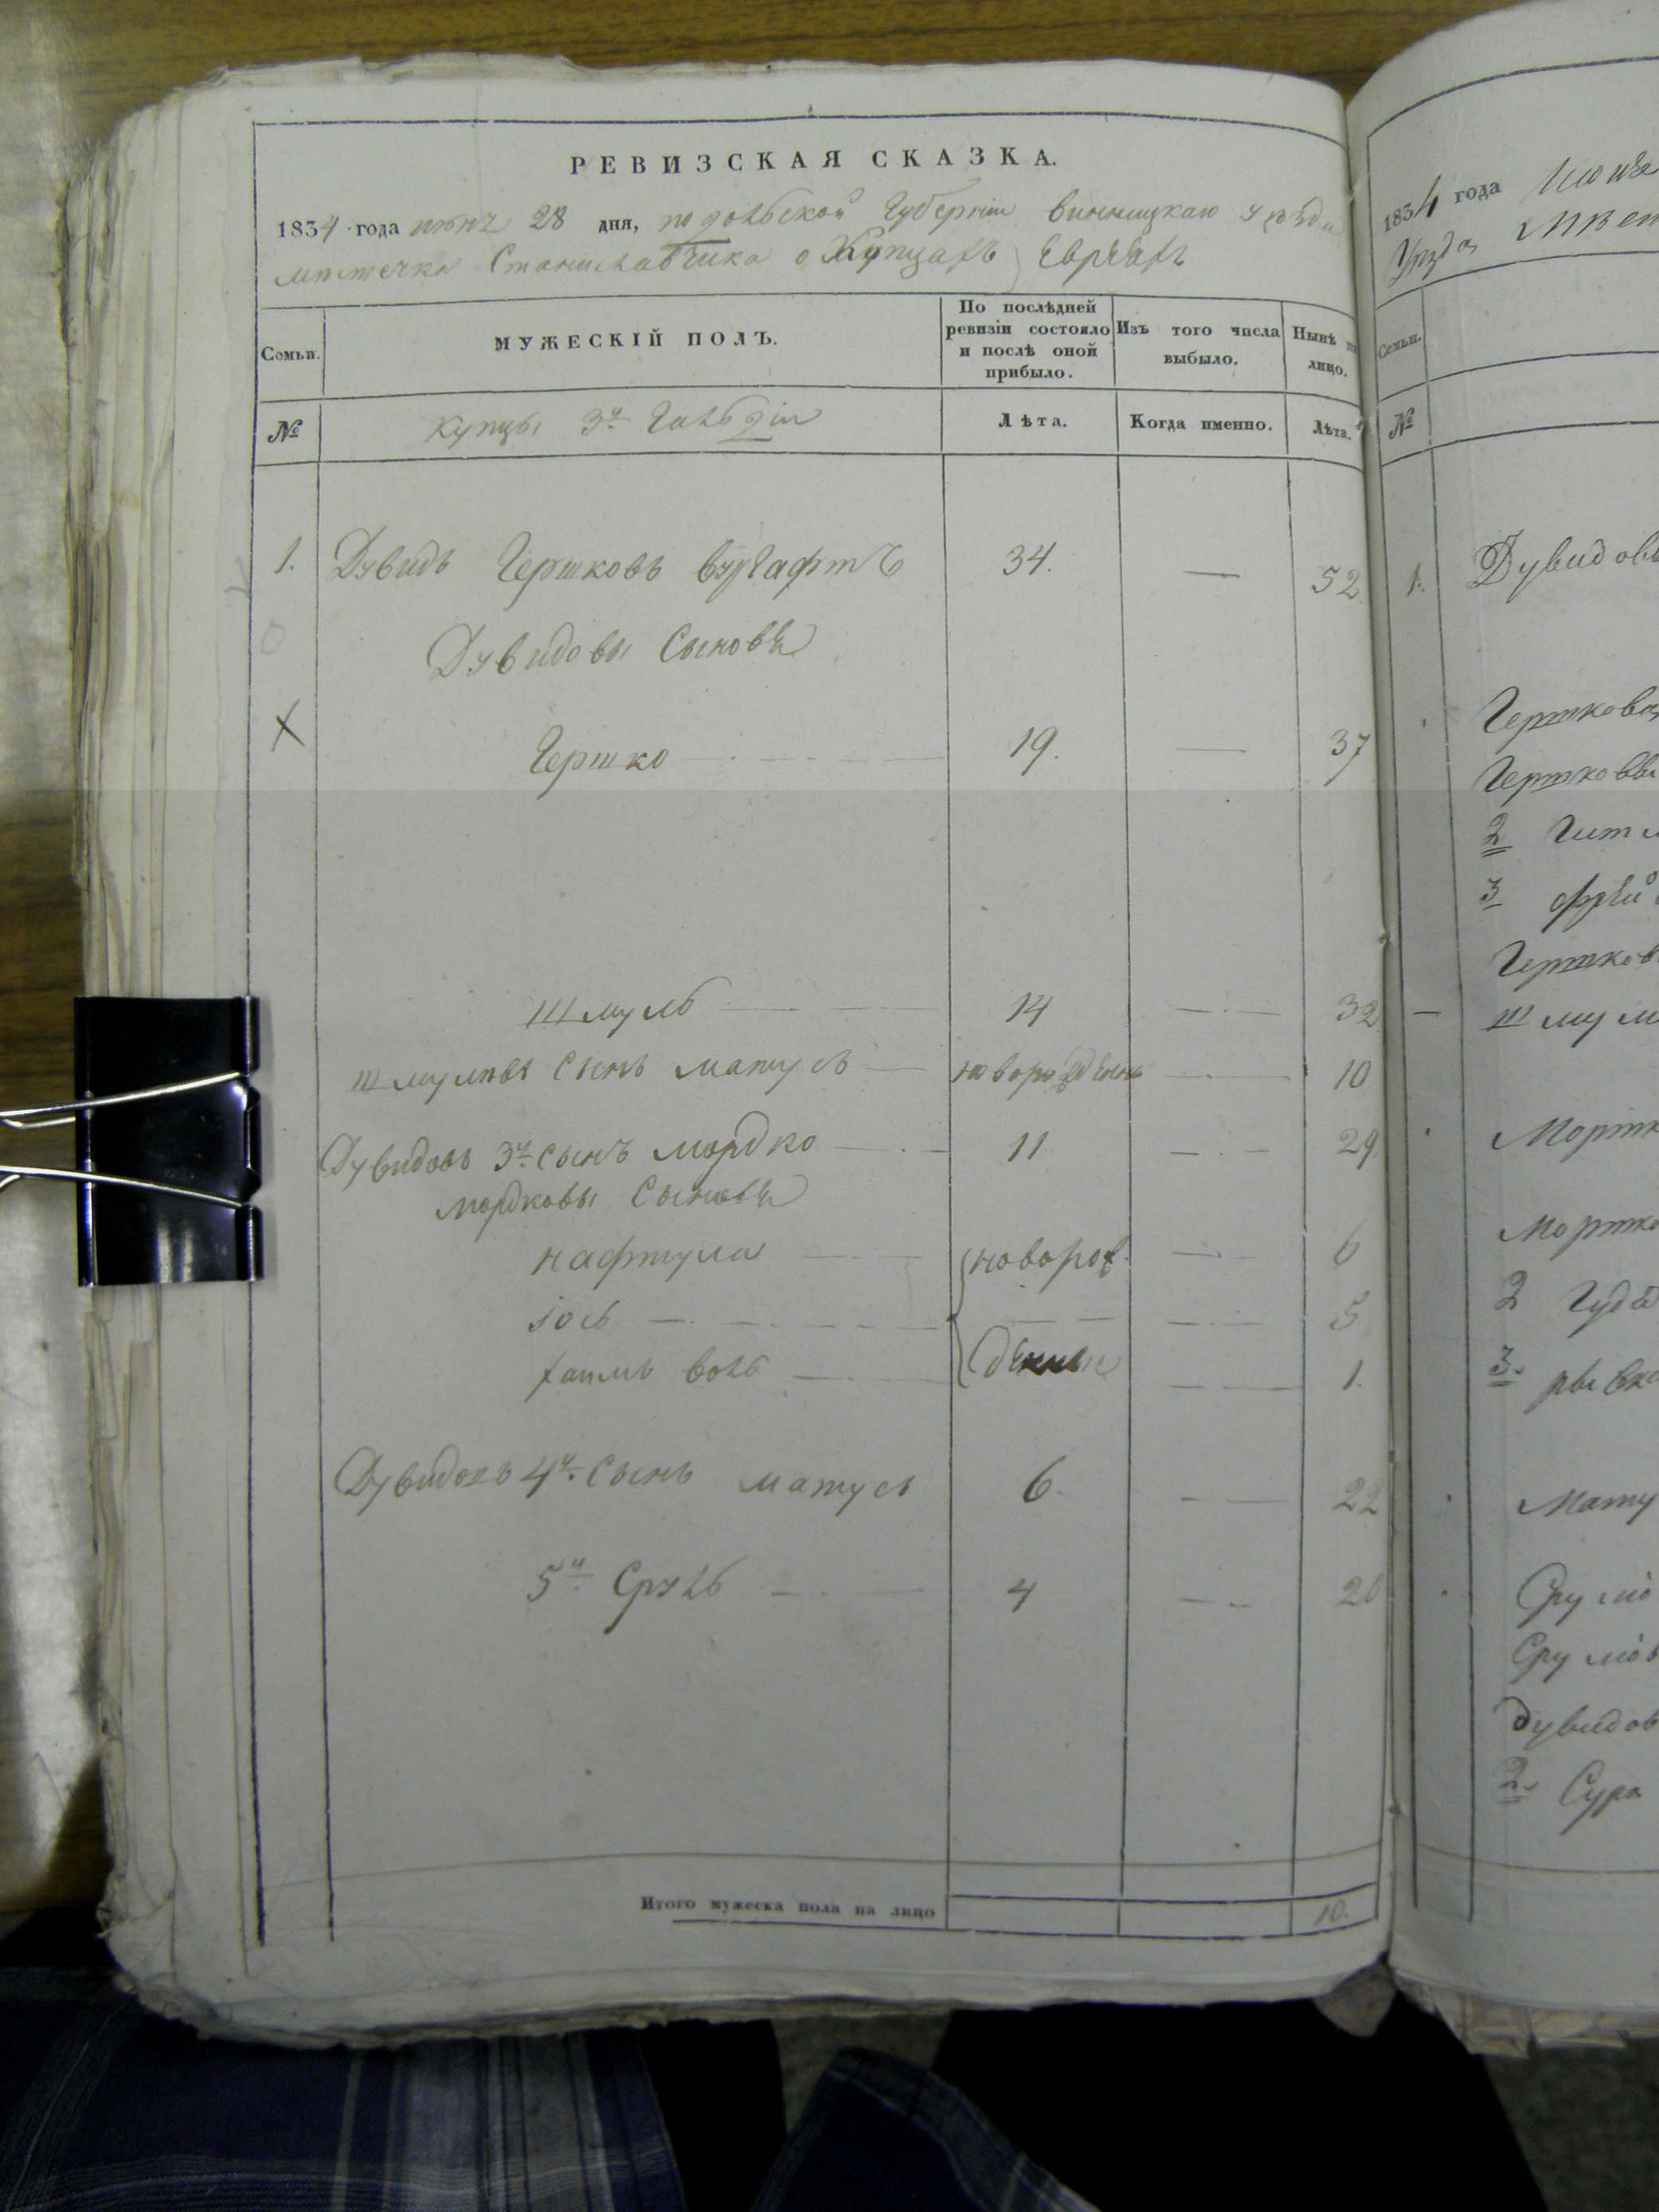 РЕВИЗСКАЯ СКАЗКА.
1834 года 28 дня, подольской Губернии винницкаго уѣзда
местечка Станиславчика о Купцахъ Евреяхъ
Семьи.
МУЖЕСКІЙ ПОЛЪ.
По послѣдней ревизіи состояло и послѣ оной прибыло.
Изъ того числа выбыло.
Нынѣ на лицо.
№
купцы 3й Гильдіи
Лѣта.
Когда именно.
Лѣта.
1. Дувидъ Гершковъ вургафтъ 34. — 52
Дувидовы Сыновя
Гершко 19. — 37
Шмуль 14 — 32
шмулевъ Сынъ матусь новорожденъ — 10
Дувидовъ 3й сынъ мордко 11 — 29
мордковы Сыновя
нафтула новорож — 6
іось — 5
хаимъ воль денные — 1.
Дувидовъ 4й Сынъ матусь 6. — 22
5й Сруль 4 — 20
Итого мужеска пола на лицо 10.
1834 года
Уѣзда
Семьи.
№
1. Дувидов
Гершкова
Гершковы
2
3
Гершков
шмул
Мортк
Мортко
2
3. рывка
Мату
Срул
Срулов
дувидов
2. Сура